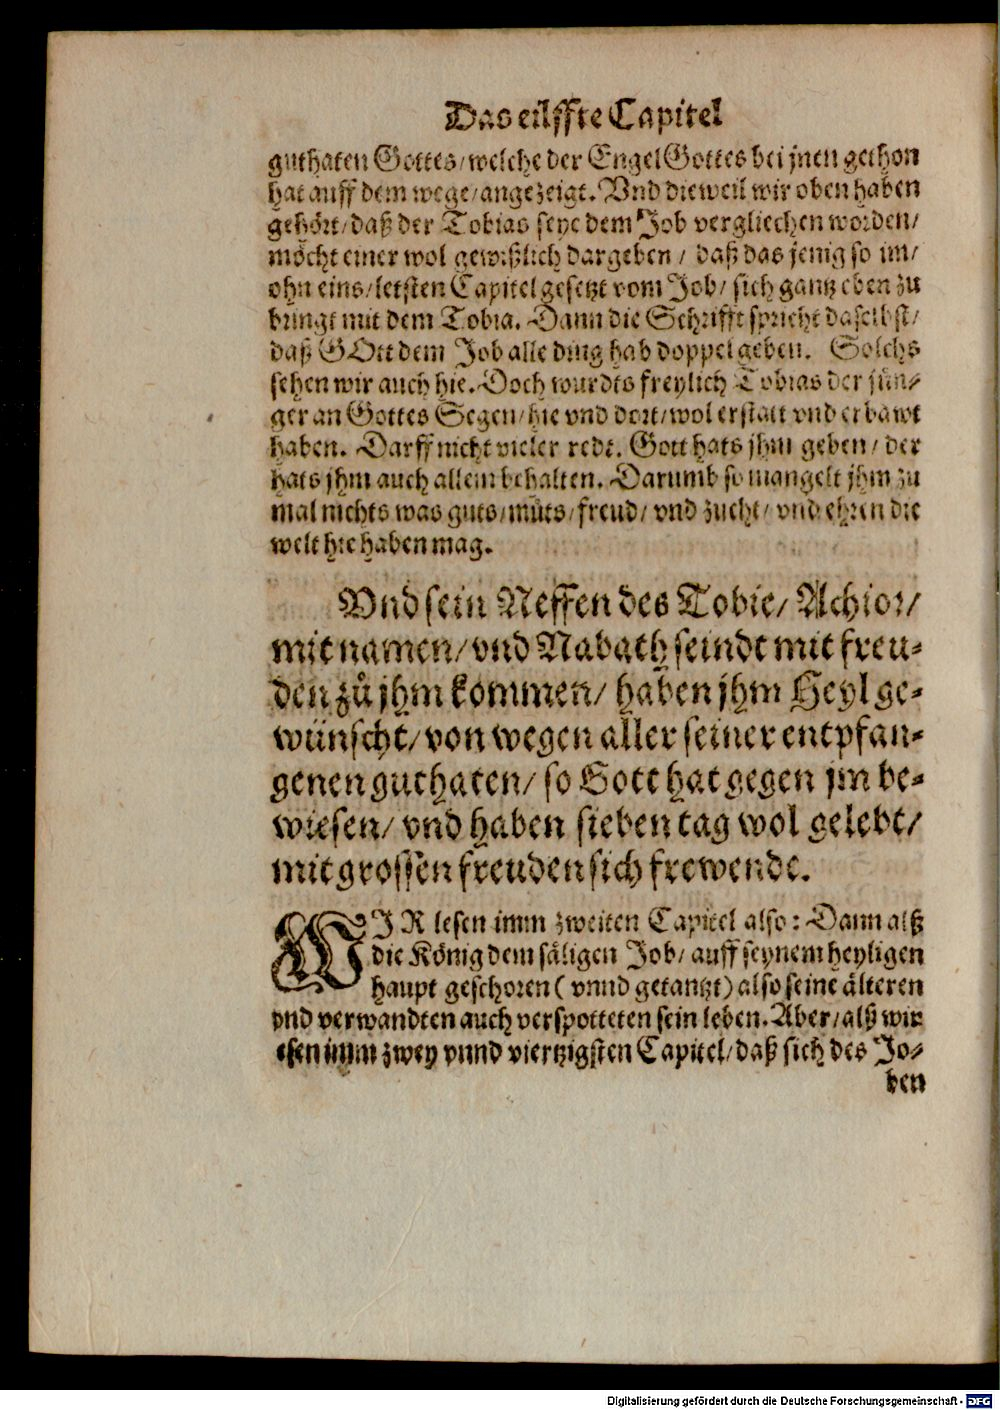 Das eilffte Capitel
guthaten Gottes/ welche der Engel Gottes bei jnen gethon
hat auff dem wege/ angezeigt. Vnd dieweil wir oben haben
gehört/ daß der Tobias seye dem Job vergliechen worden/
möcht einer wol gewißlich dargeben / daß das jenig so im/
ohn eins/ letsten Capitel gesetzt vom Job/ sich gantz eben zu
bringt mit dem Tobia. Dann die Schrifft spricht daselbst/
daß GOtt dem Job alle ding hab doppel geben. Solchs
sehen wir auch hie. Doch wurdts freylich Tobias der jün⸗
ger an Gottes Segen/ hie vnd dort/ wol erstatt vnd erbawt
haben. Darff nicht vieler redt. Gott hats jhm geben/ der
hats jhm auch allein behalten. Darumb so mangelt jhm zu
mal nichts was guts/ můts/ freud/ vnd zucht/ vnd ehren die
welt hie haben mag.
Vnd sein Neffen des Tobie/ Achior/
mit namen/ vnd Nabath seindt mit freu⸗
den zů jhm kommen/ haben jhm Heyl ge⸗
wünscht/ von wegen aller seiner entpfan⸗
genen guthaten/ so Gott hat gegen jm be⸗
wiesen/ vnd haben sieben tag wol gelebt/
mit grossen freuden sich frewende.
WIR lesen imm zweiten Capitel also: Dann alß
die König dem säligen Job/ auff seynem heyligen
haupt geschoren ( vnnd getantzt) also seine älteren
vnd verwandten auch verspotteten sein leben. Aber/ alß wir
esen imm zwey vnnd viertzigsten Capitel/ daß sich des Jo⸗
ben
Digitalisierung gefördert durch die Deutsche Forschungsgemeinschaft - DFG